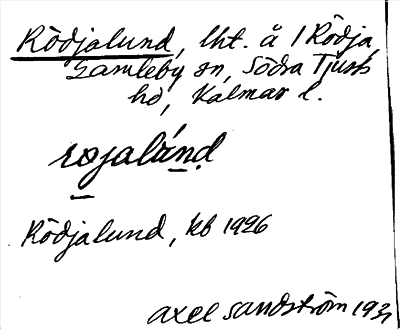 Rödjalund, lht. å 1 Rödja,
Gamleby sn, Södra Tjust
hd, Kalmar l.
røjalánd
Rödjalund, kb 1926
Axel Sandström 1931